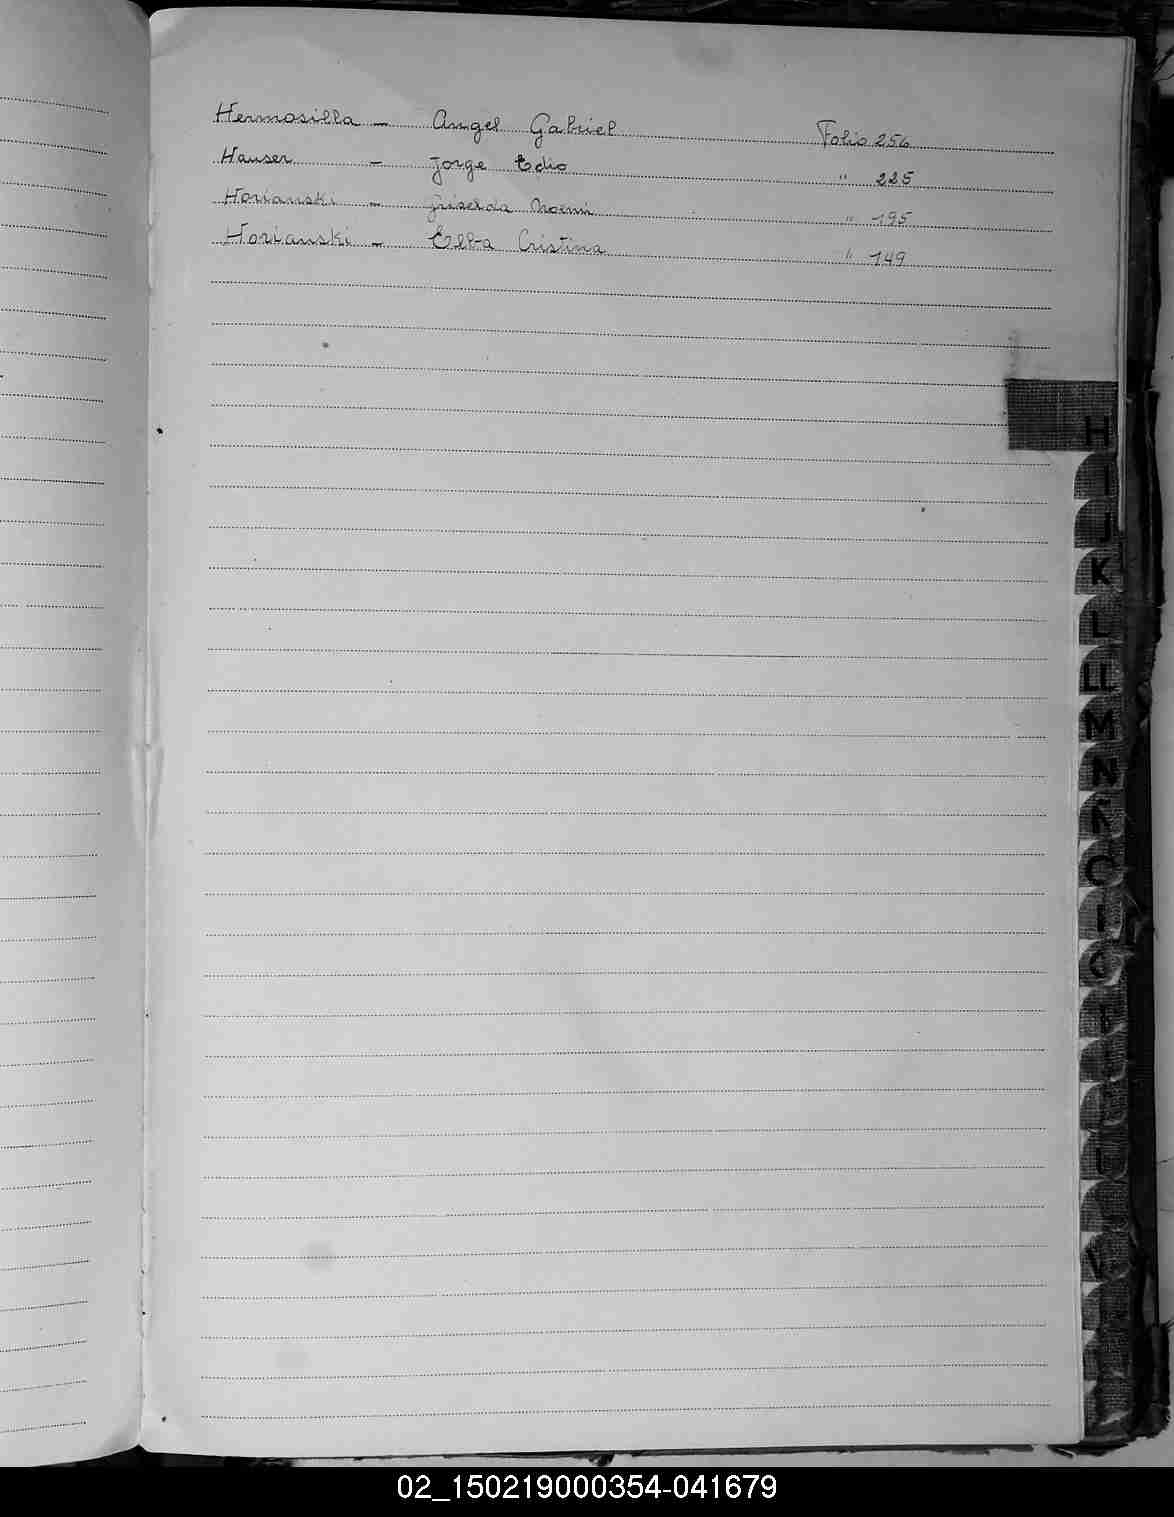 Hermosilla - Angel Gabriel Folio 256
Hauser - Jorge Edio " 225
Horianski - Griselda Noemi " 195
Horianski - Elba Cristina " 149
H
I
J
K
L
LL
M
N
Ñ
O
02_150219000354-041679